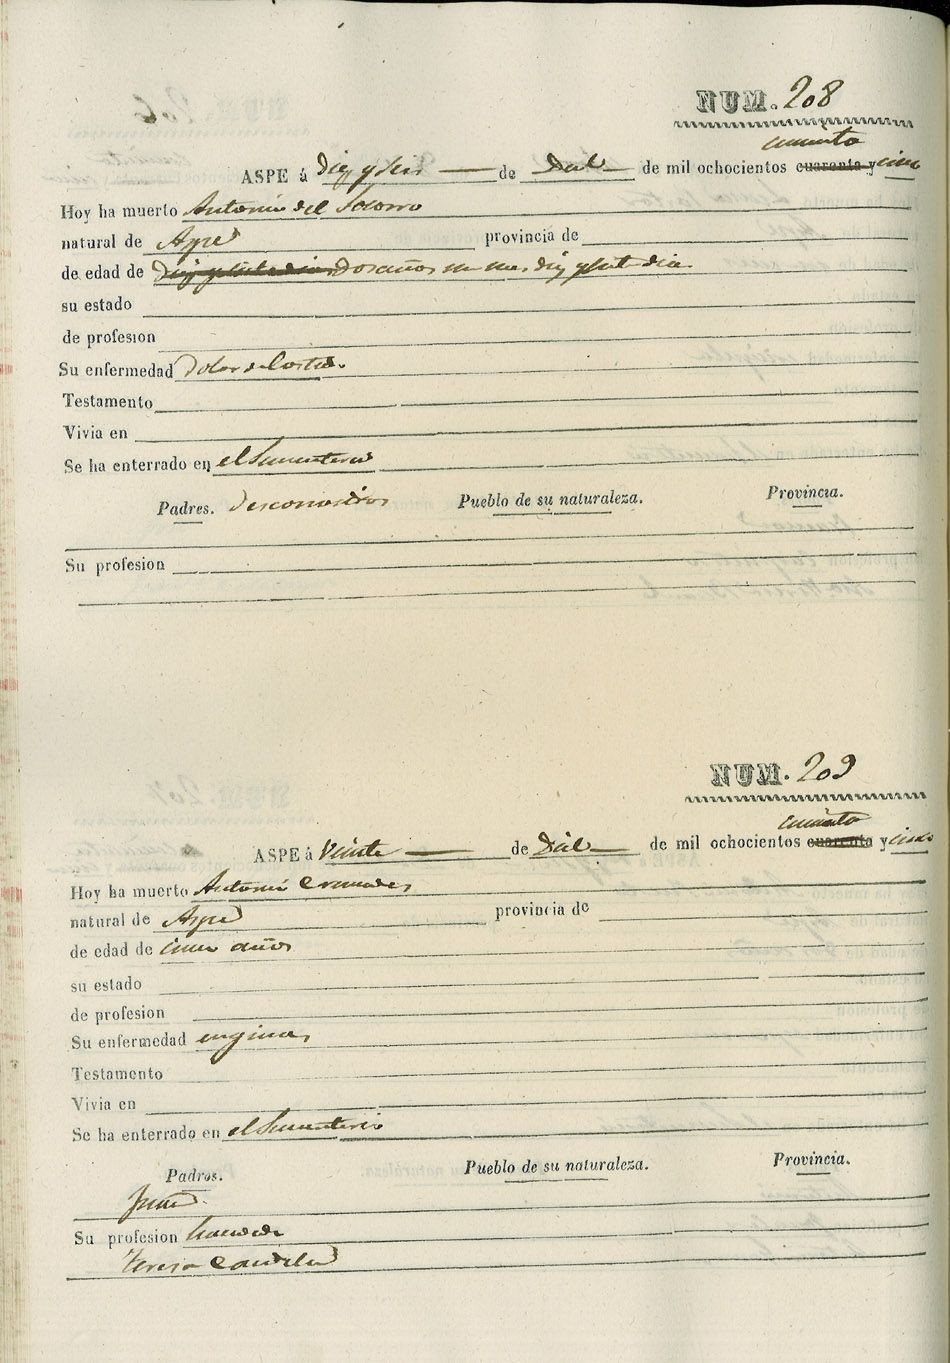 NUM. 208
cincuenta
ASPE á Diez y seis de de mil ochocientos cuarenta y cinco
Hoy ha muerto Antonia del Socorro
natural de Aspe provincia de
de edad de Diez y siete dias Dos años un mes diez y siete dia
su estado
de profesion
Su enfermedad Dolor de Costado.
Testamento
Vivia en
Se ha enterrado en el Sementerio
Padres. Desconosidos Pueblo de su naturaleza. Provincia.
Su profesion
NUM. 209
cincuenta
ASPE á Veinte de de mil ochocientos cuarenta y cinco
Hoy ha muerto Antonia
natural de Aspe provincia de
de edad de cinco años
su estado
de profesion
Su enfermedad anginas
Testamento
Vivia en
Se ha enterrado en el Sementerio
Padres. Pueblo de su naturaleza. Provincia.
Juan
Su profesion
Teresa Candela